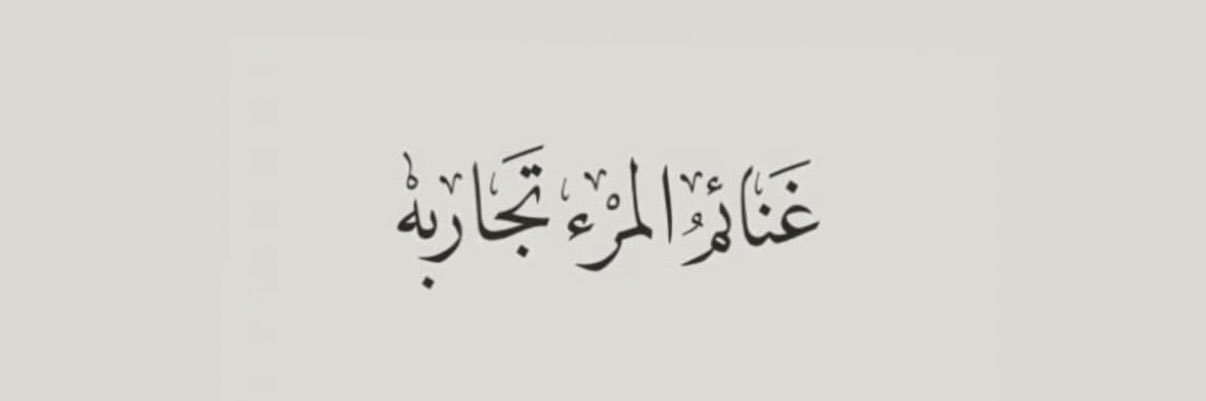 غَنَائِمُ المَرْءِ تَجَارِبهْ